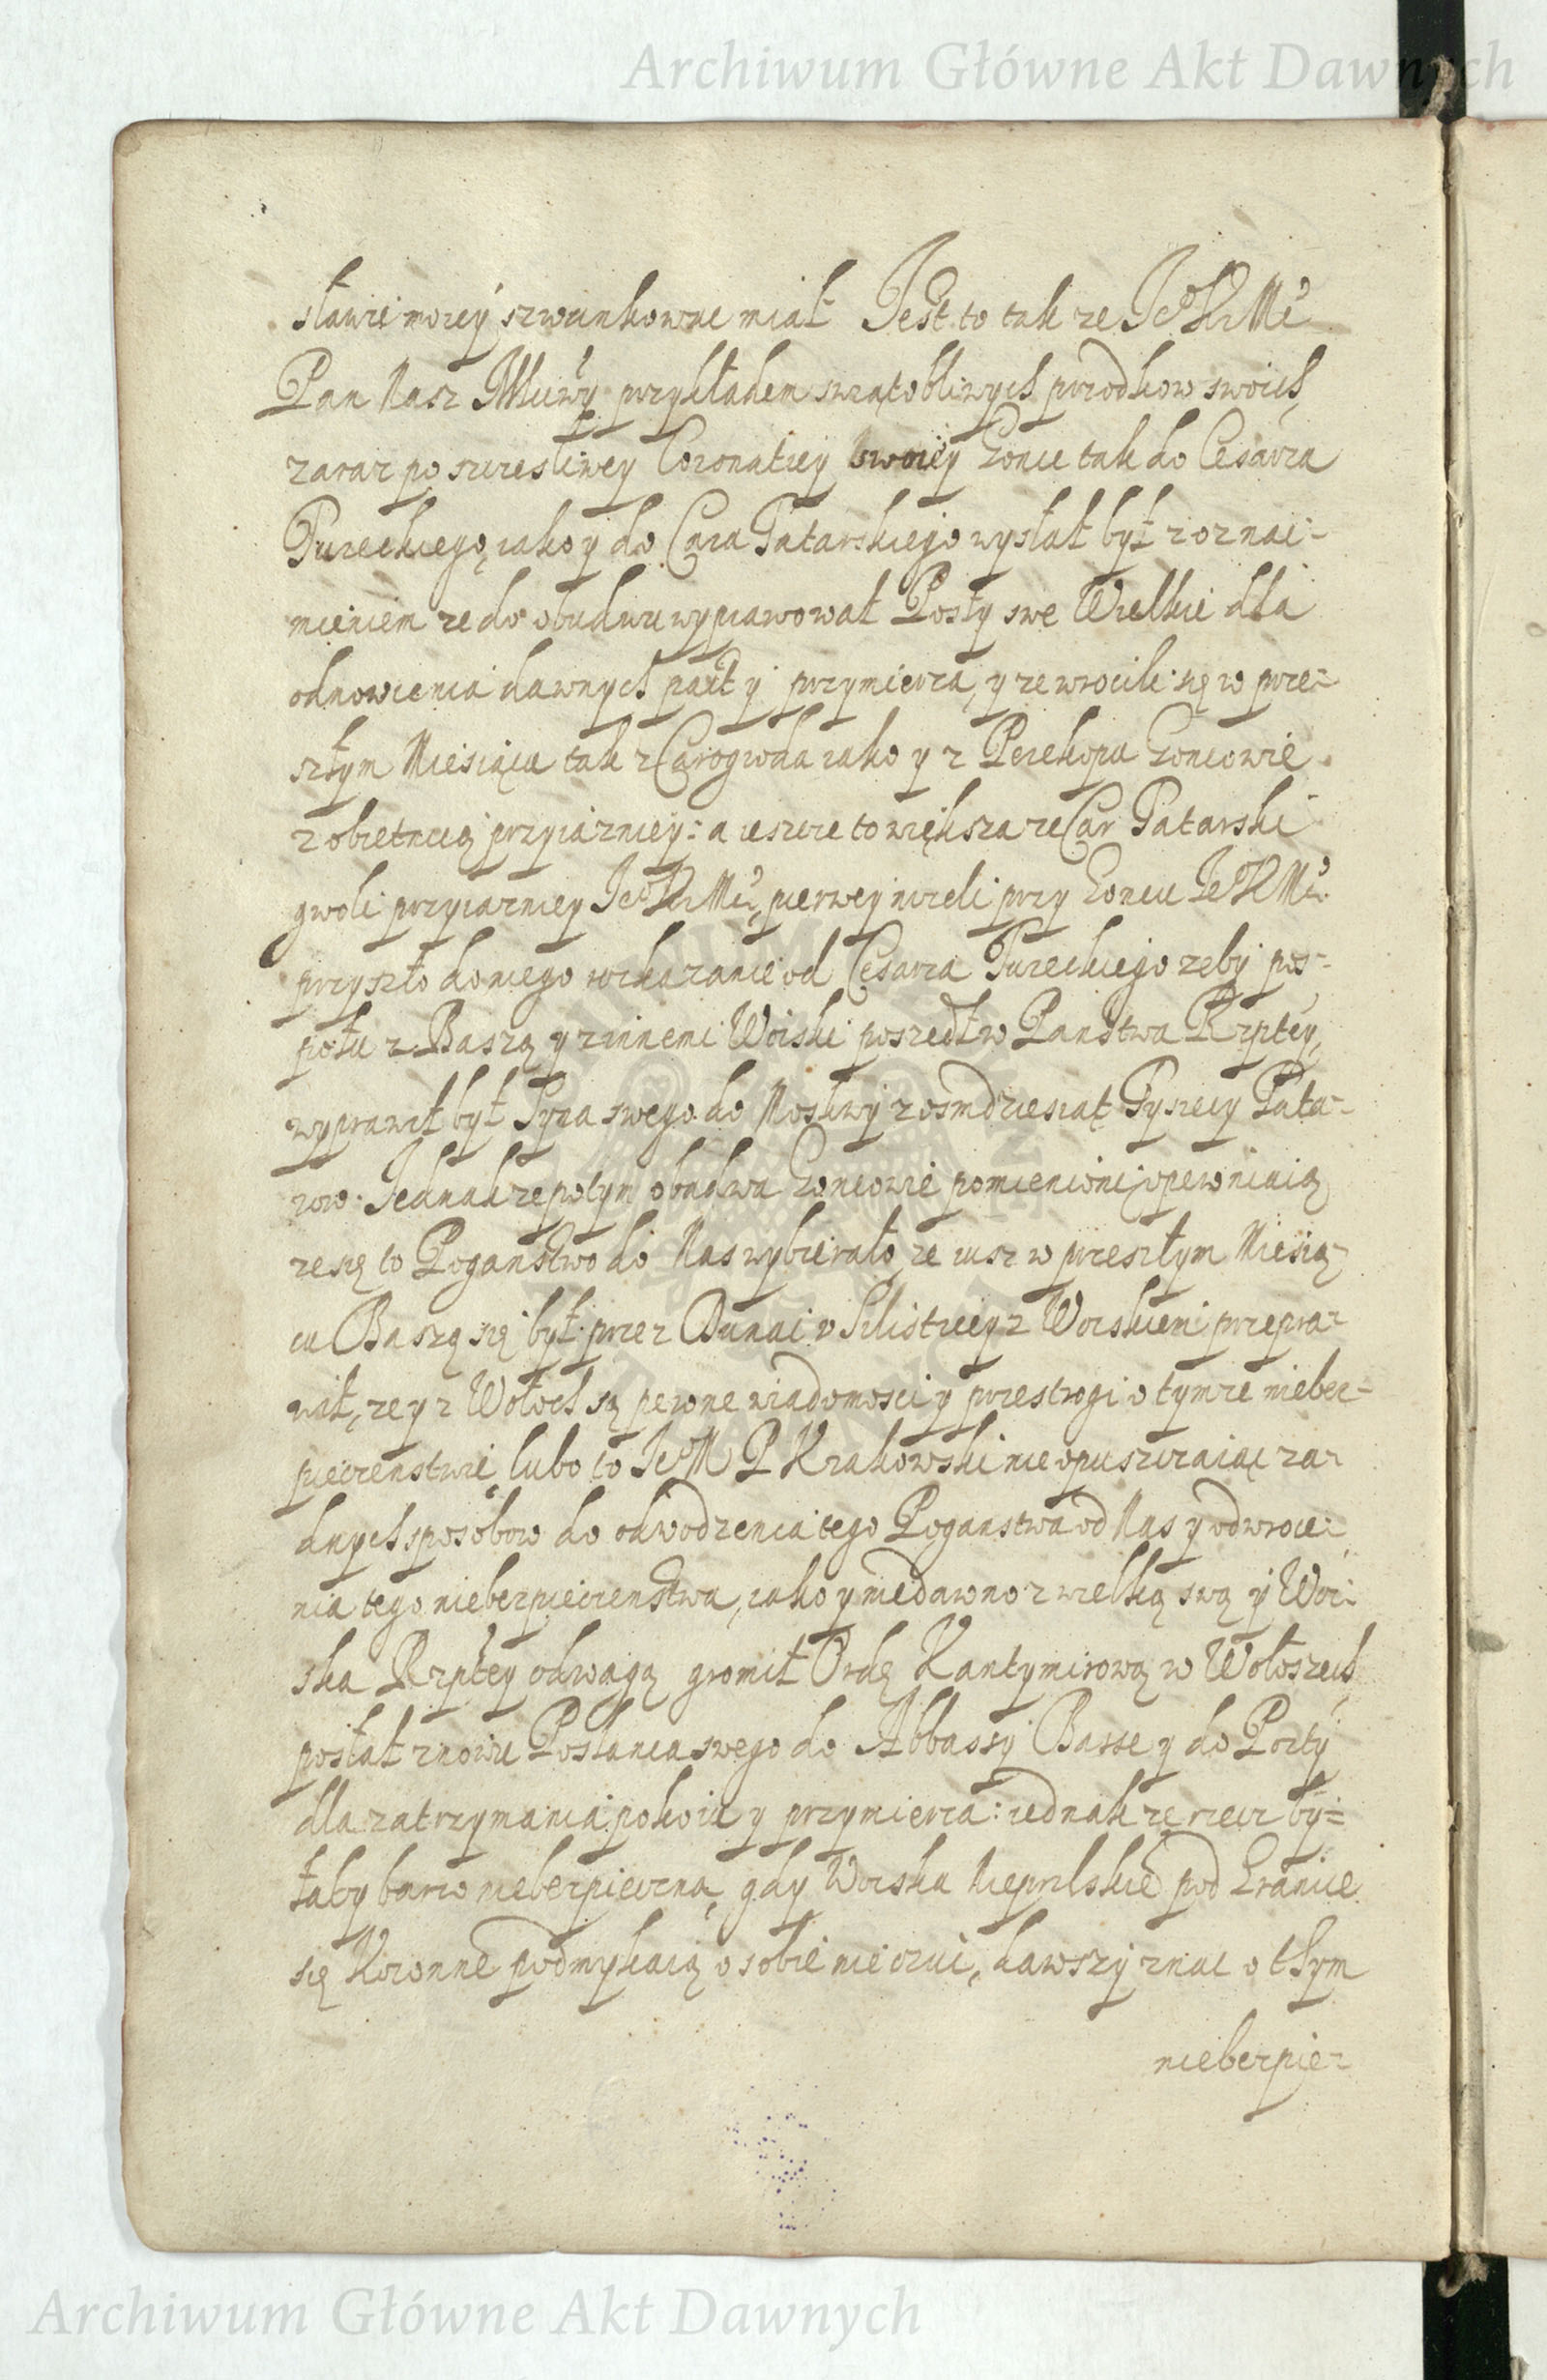 Archiwum Główne Akt Dawnych
sławie mocży szwankowac miał Jest to tak ze Je° Kr Mć
Pan Nasz Mciwy przykładem swiątobliwych przodkow swoich,
zaraz po szczesliwey Coronatiey swoiey Gonce tak do Cesarza
Tureckiego, iako y do Cara Tatarskiego wysłał był z oznai-
mieniem ze do obudwu wyprawował Posły swe Wielkie dla
odnowienia dawnych pact y przymierza, y ze wrocili się w prze-
szłym Miesiącu tak z Carogroda iako y z Perekopu Goncowie
z obietnicą przyiazniey: a ieszcze to większa ze Car Tatarski
gwoli przyiazniey Je° Kr Mći, pierwey nizeli przy Goncu Je° K Mći
przyszło do niego wskazanie od Cesarza Tureckiego zeby pos-
połu z Baszą y z innemi Woiski poszedł w Panstwa Rzptey,
wyprawił był Syna swego do Moskwy z osmdziesiąt Tysięcy Tata-
row. Jednak ze potym obadwa Goncowie pomienieni upewniaią
ze się to Poganstwo do Nas wybierało, ze iusz w przeszłym Miesią-
cu Baszą się był przez Dunai v Silistriey z Woiskiem przepra-
wił, ze y z Wołoch są pewne wiadomosci y przestrogi o tymze niebez-
pieczenstwie, lubo to Je° M P Krakowski nie opuszczaiąc za-
dnych sposobow do odwodzenia tego Poganstwa od Nas y odwroce-
nia tego niebezpieczenstwa, iako y niedawno z wielką swą y Woi-
ska Rzptey odwagą gromił Ordę Kantymirową w Wołoszech
posłał znowu Posłanca swego do Abbassy Basse y do Porty
dla zatrzymania pokoiu y przymierza: iednak ze rzecz by-
łaby barzo niebezpieczna, gdy Woiska Nieprzilskie pod Granice
się Koronne podmykaią o sobie nie czuć, dawszy znac o tSym
niebezpie-
Archiwum Główne Akt Dawnych